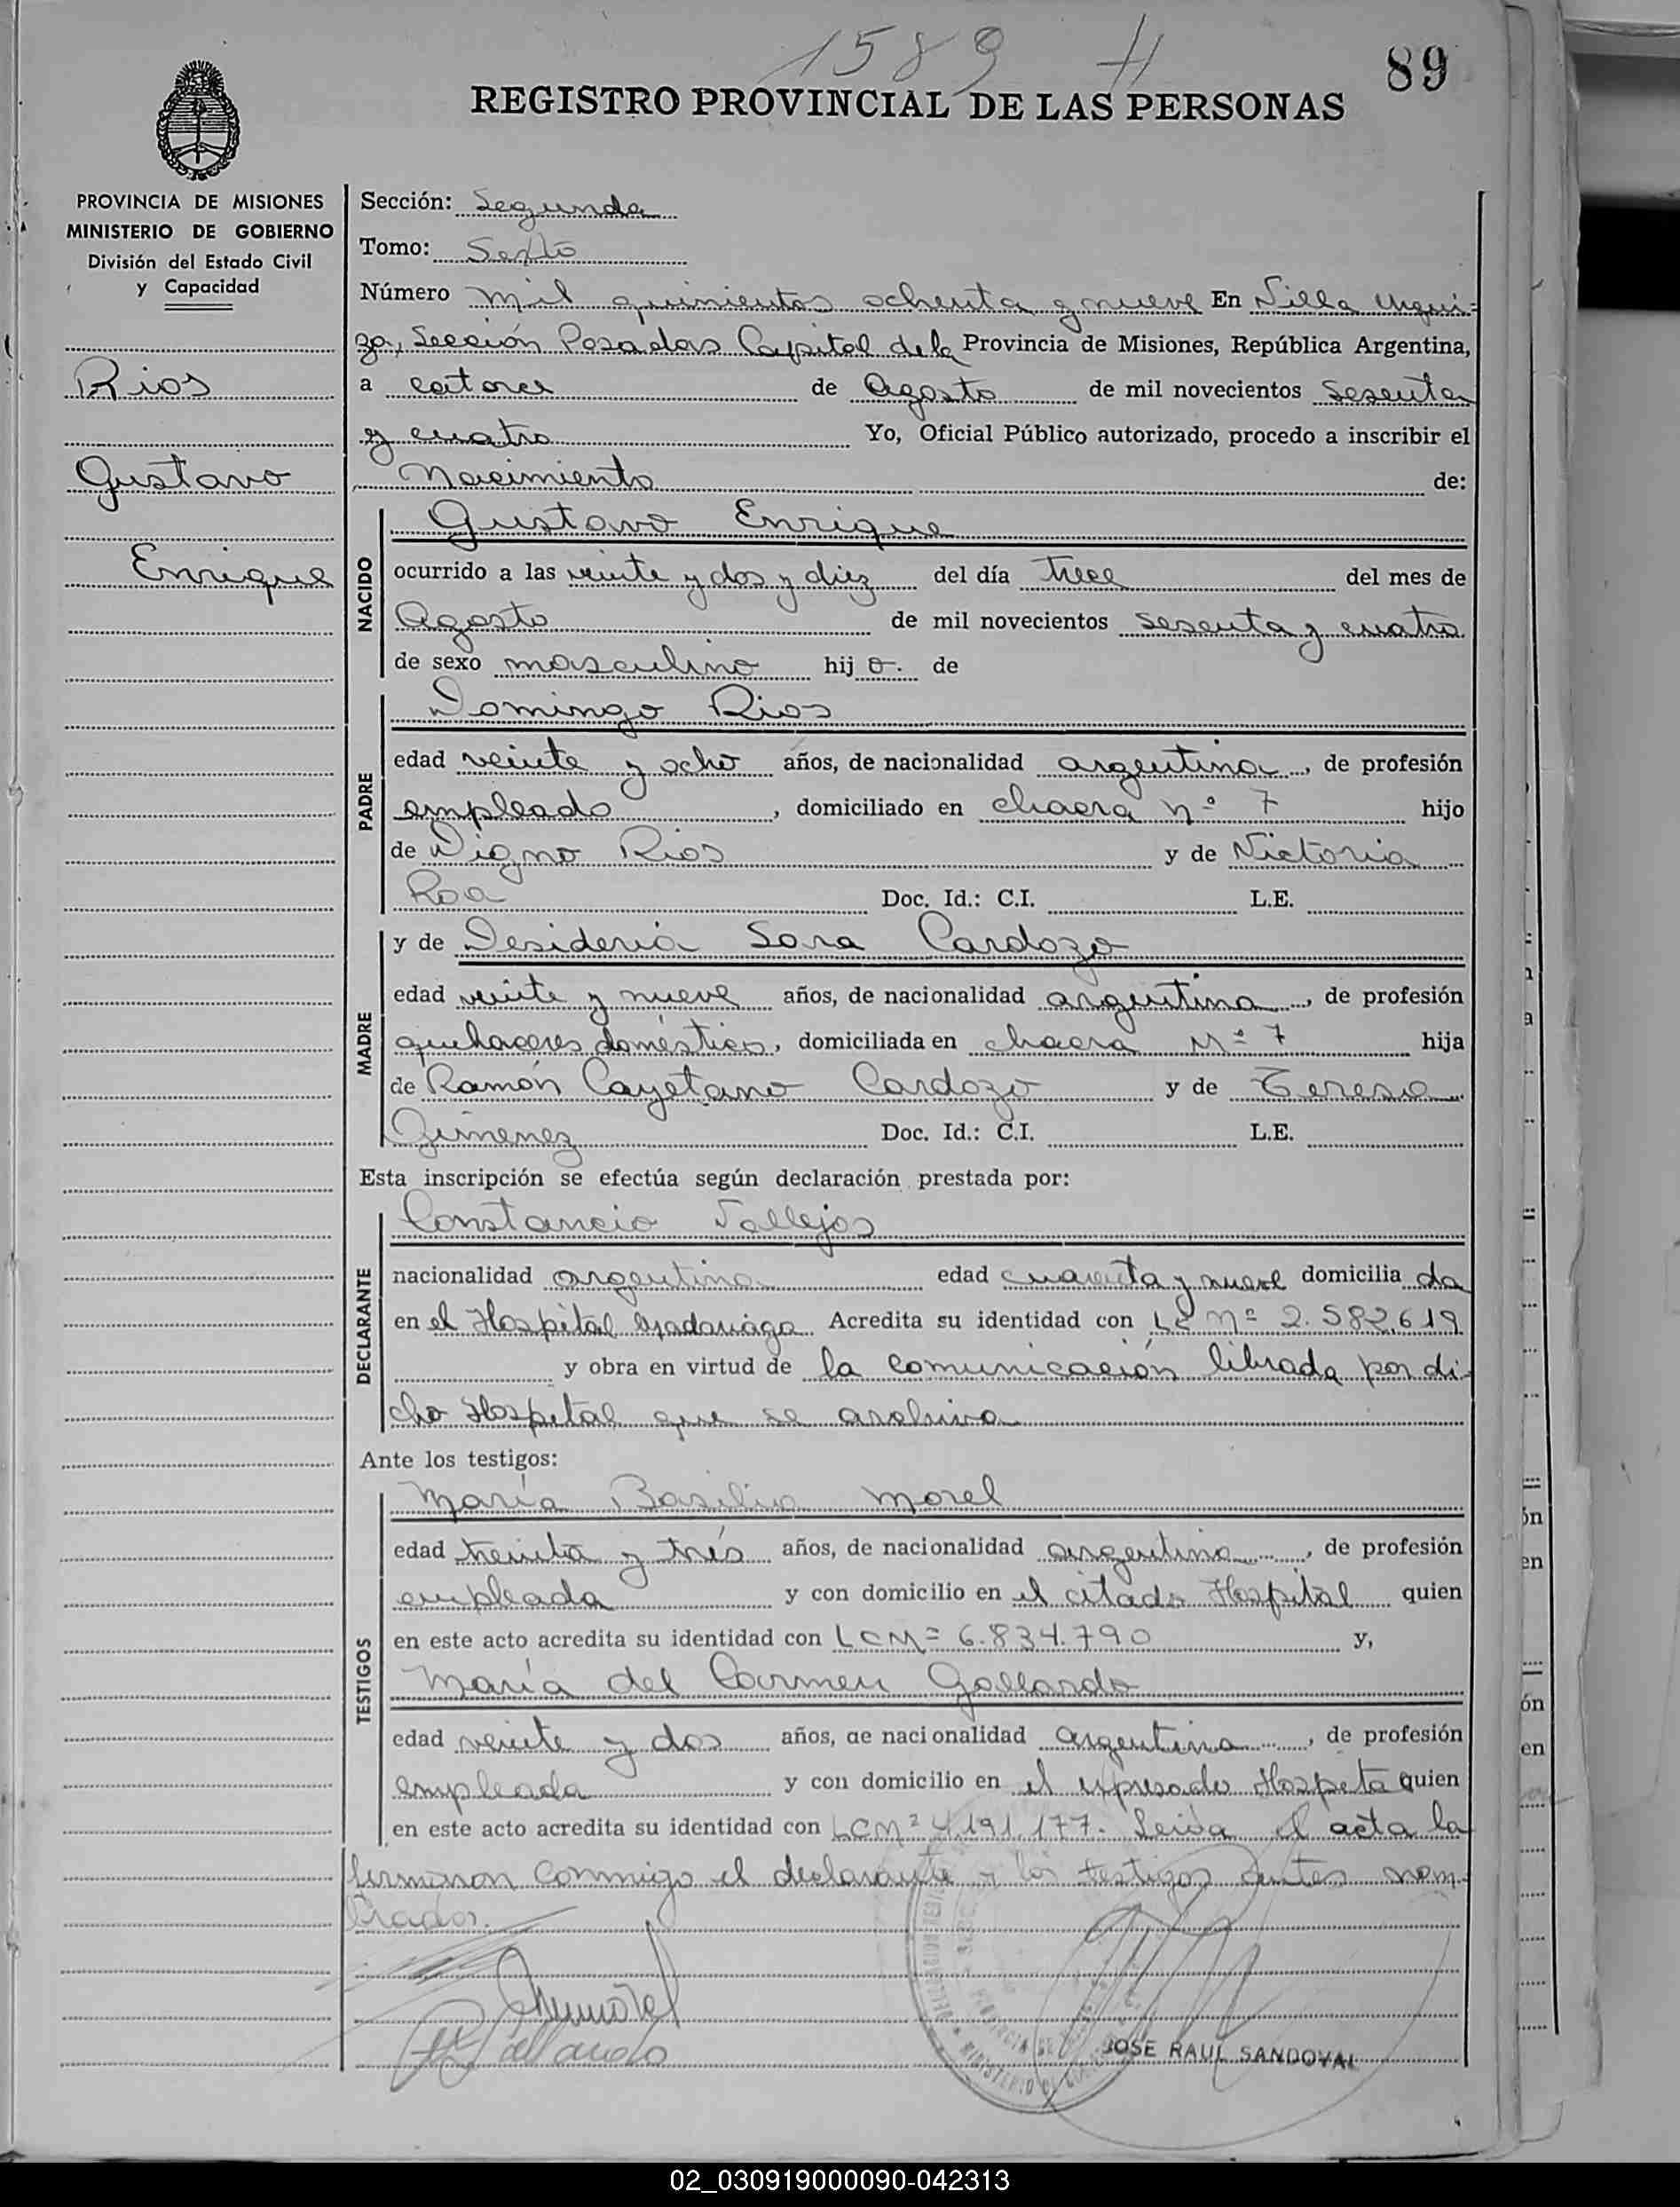 1589 H
89
REGISTRO PROVINCIAL DE LAS PERSONAS
PROVINCIA DE MISIONES
MINISTERIO DE GOBIERNO
División del Estado Civil
y Capacidad
Rios
Gustavo
Enrique
Sección: Segunda
Tomo: Sexto
Número mil quinientos ochenta y nueve En Villa Urqui-
za, Sección Posadas Capital de la Provincia de Misiones, República Argentina,
a catorce de Agosto de mil novecientos sesenta
y cuatro Yo, Oficial Público autorizado, procedo a inscribir el
Nacimiento de:
NACIDO
Gustavo Enrique
ocurrido a las veinte y dos y diez del día trece del mes de
Agosto de mil novecientos sesenta y cuatro
de sexo masculino hijo. de
PADRE
Domingo Rios
edad veinte y ocho años, de nacionalidad argentina, de profesión
empleado, domiciliado en chacra nº 7 hijo
de Digno Rios y de Victoria
Roa Doc. Id.: C.I. L.E.
MADRE
y de Desideria Sara Cardozo
edad veinte y nueve años, de nacionalidad argentina, de profesión
quehaceres domésticos, domiciliada en chacra Nº 7 hija
de Ramón Cayetano Cardozo y de Teresa
Gimenez Doc. Id.: C.I. L.E.
Esta inscripción se efectúa según declaración prestada por:
DECLARANTE
Constancio Vallejos
nacionalidad argentina edad cuarenta y nueve domicilia da
en el Hospital Madariaga Acredita su identidad con nº 2.582.619
y obra en virtud de la comunicación librada por di-
cho Hospital que se archiva
Ante los testigos:
TESTIGOS
María Basilia Morel
edad treinta y trés años, de nacionalidad argentina, de profesión
empleada y con domicilio en el citado Hospital quien
en este acto acredita su identidad con LCNº 6.834.790 y,
María del Carmen Gallardo
edad veinte y dos años, de nacionalidad argentina, de profesión
empleada y con domicilio en el expresado Hospital quien
en este acto acredita su identidad con LCNº 4.191.177. Leida el acta la
firmaron conmigo el declarante y los testigos antes nom-
brados.
Gallardo
JOSE RAUL SANDOVAL
02_030919000090-042313